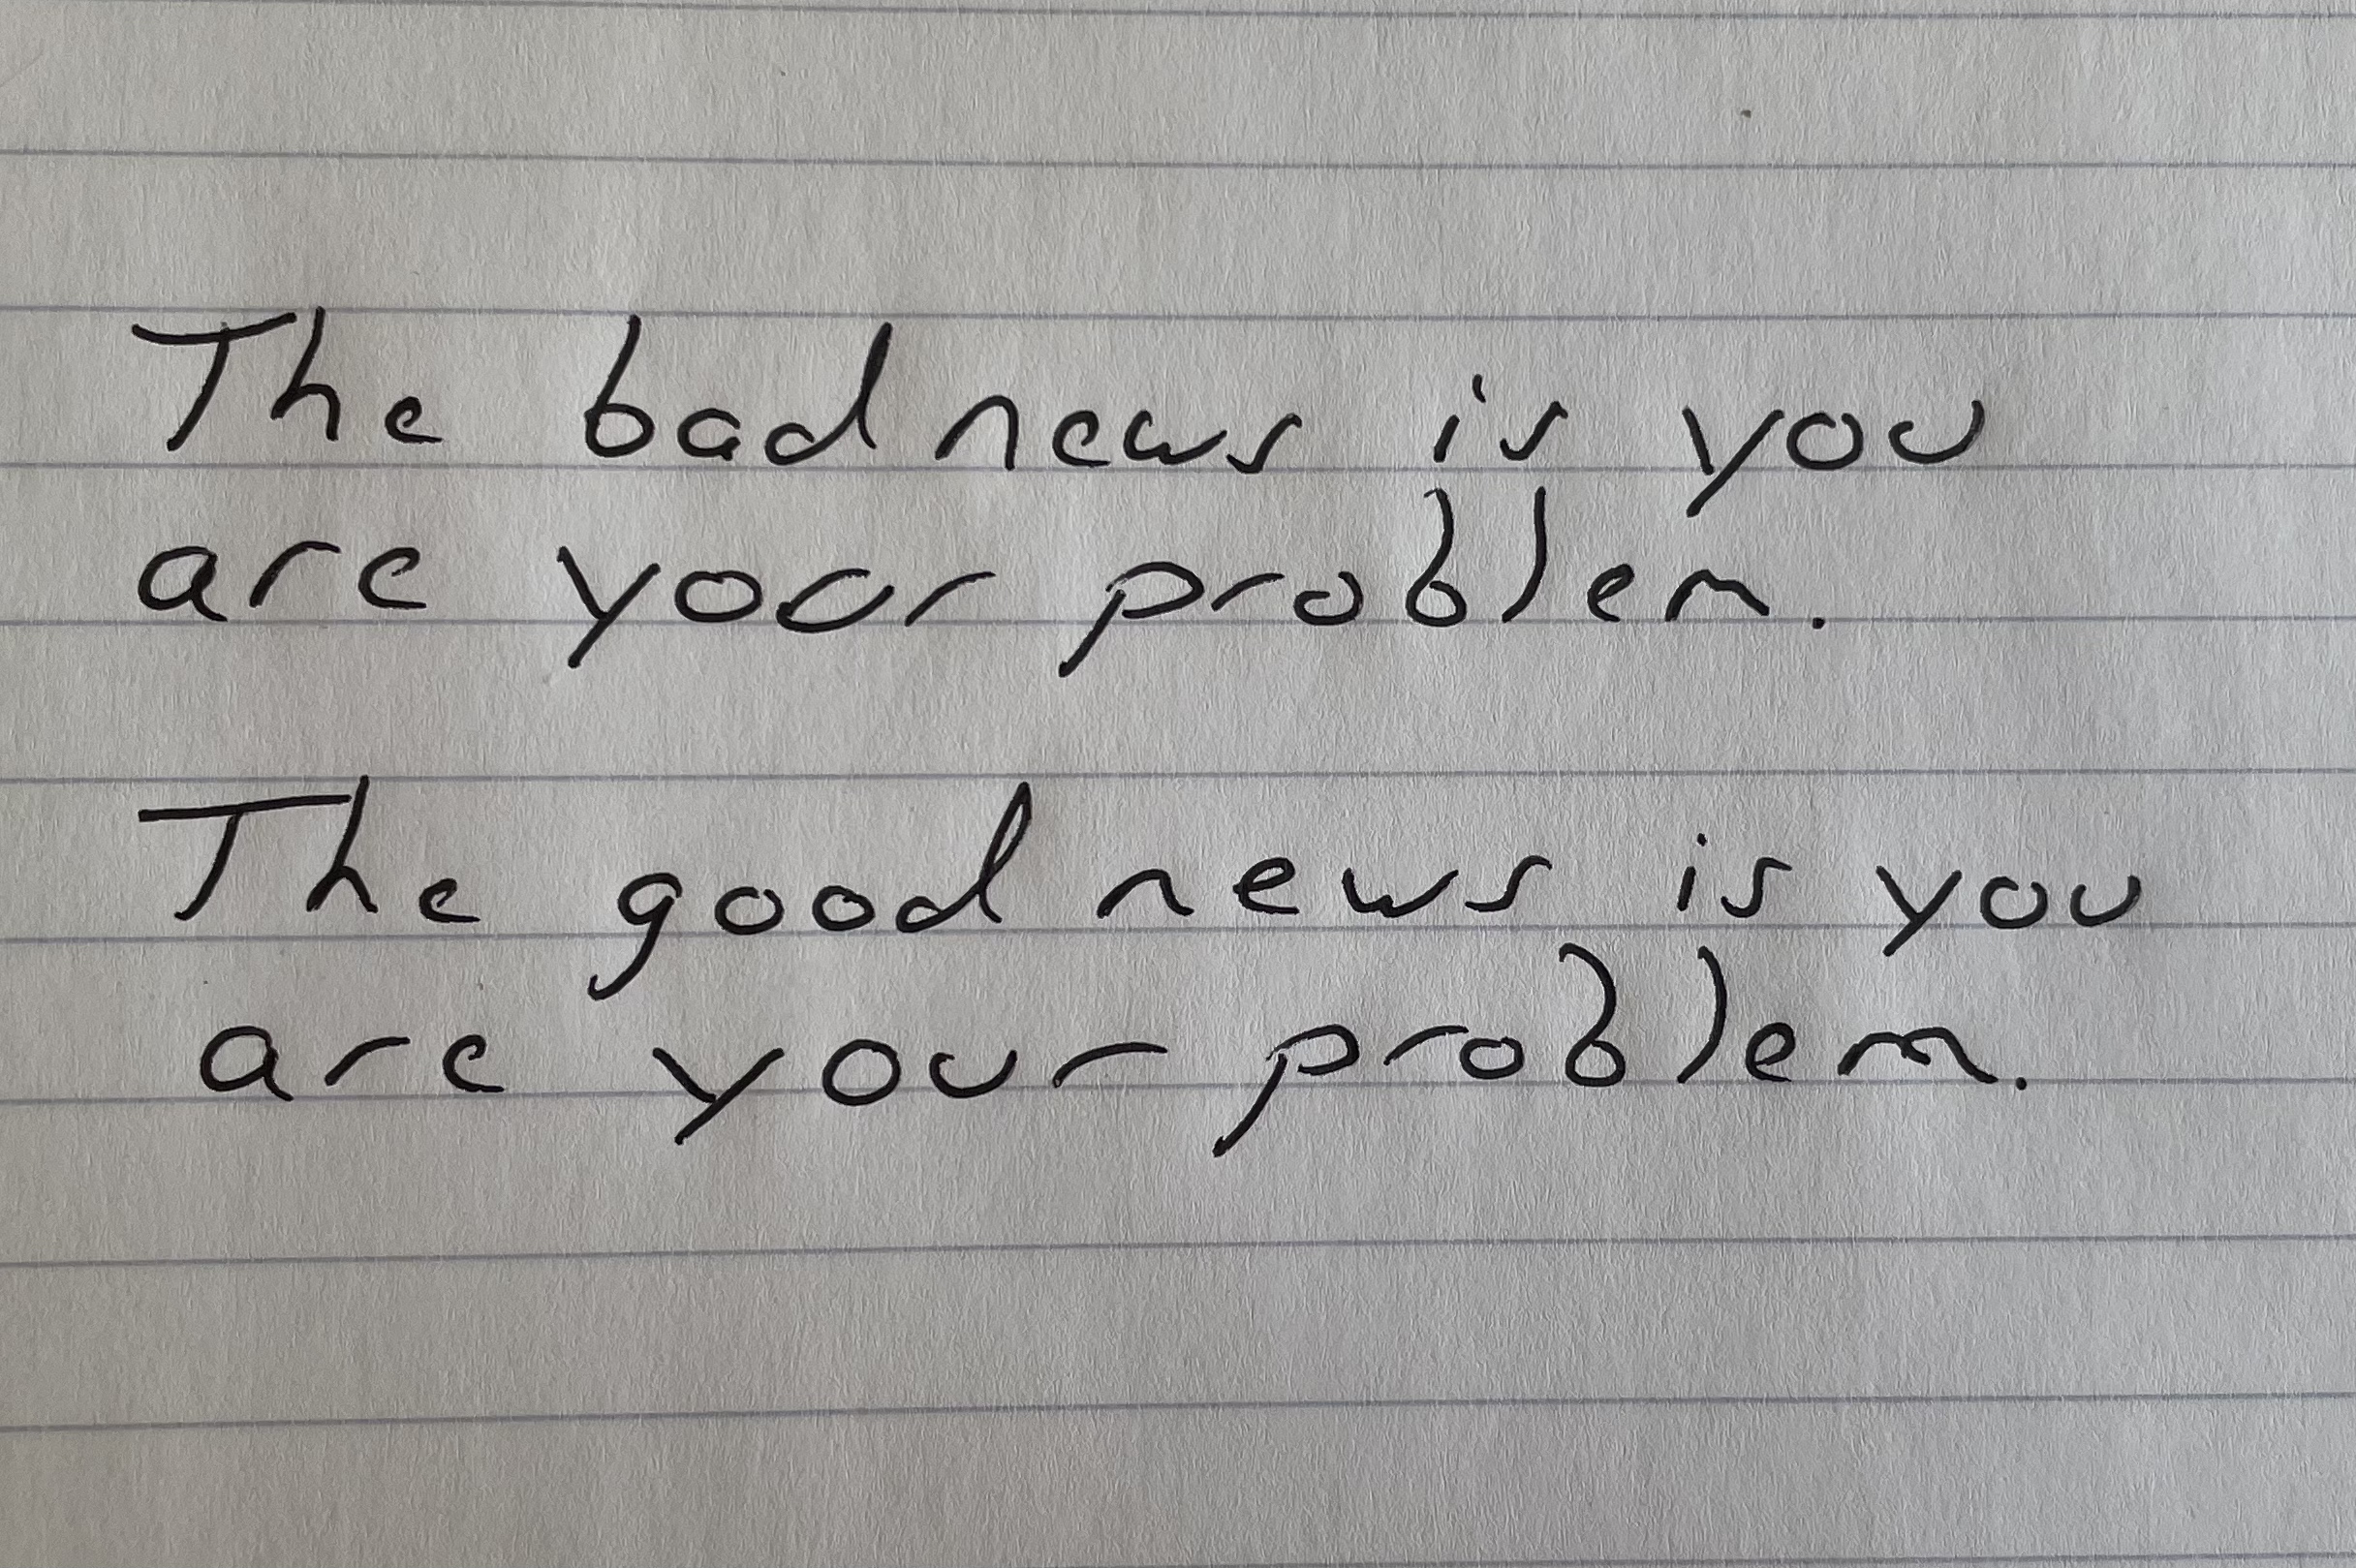 The bad news is you
are your problem.
The good news is you
are your problem.